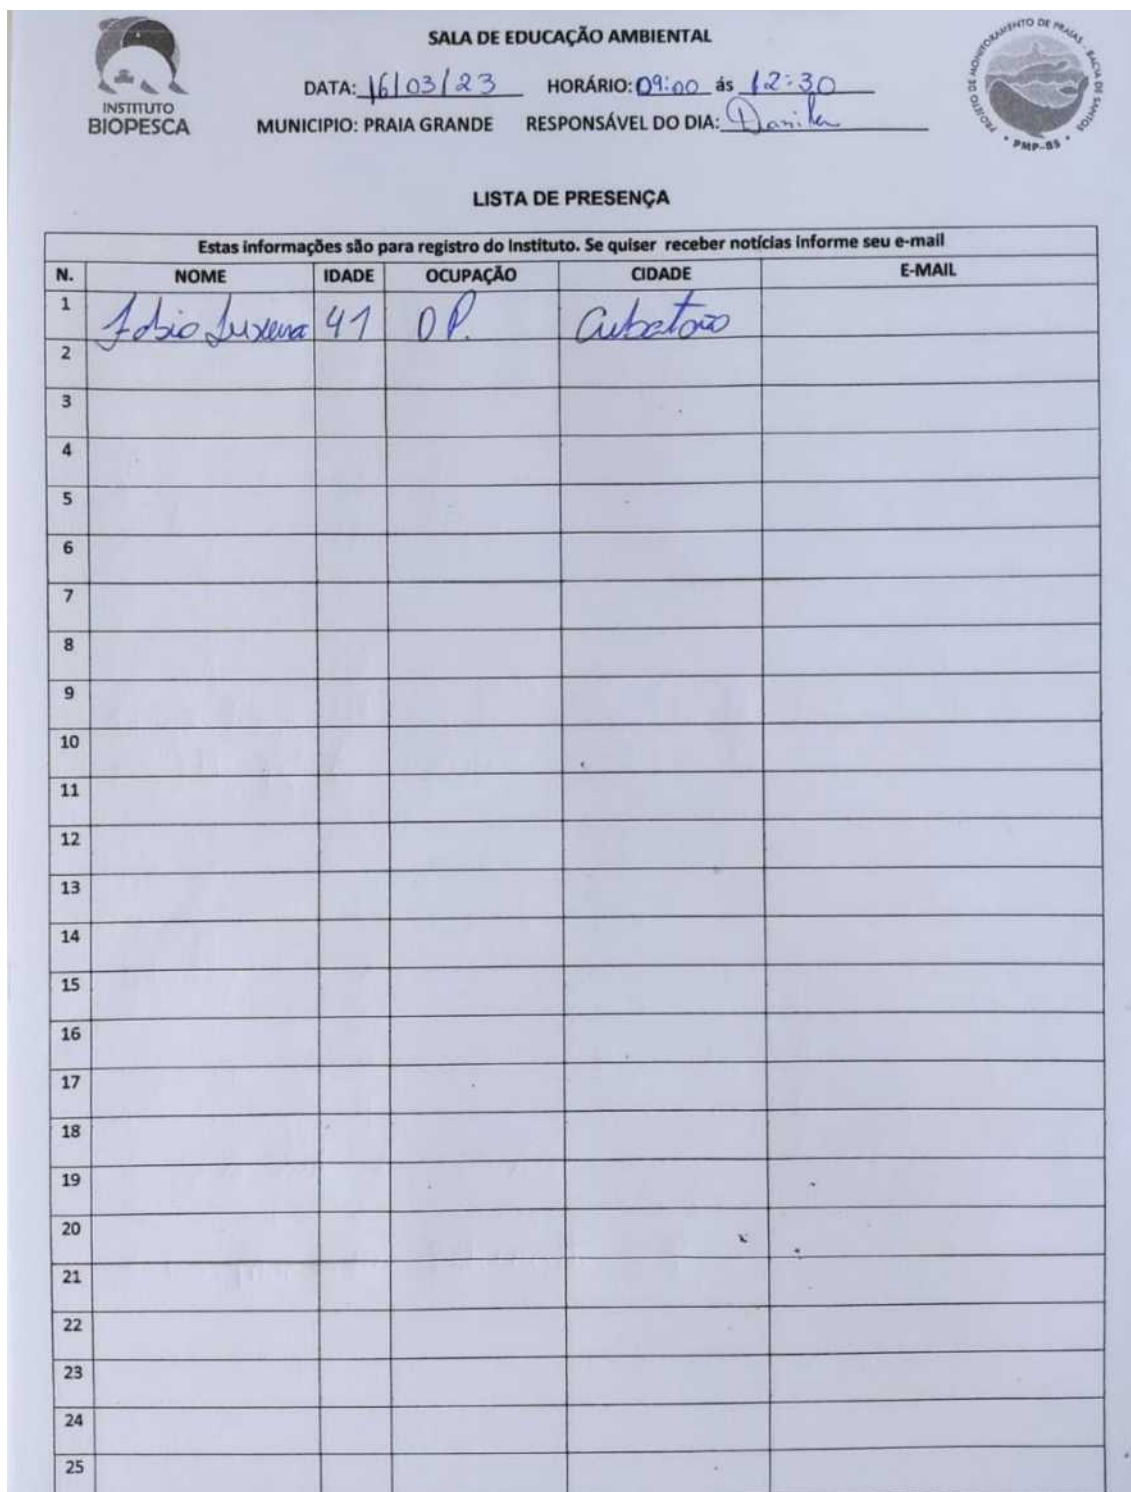 SALA DE EDUCAÇÃO AMBIENTAL
DATA: 16/03/23 HORÁRIO: 09:00 ás 12:30
MUNICIPIO: PRAIA GRANDE RESPONSÁVEL DO DIA: Danila
INSTITUTO
BIOPESCA
PROJETO DE MONITORAMENTO DE PRAIAS - BACIA DE SANTOS
• PMP-BS •
LISTA DE PRESENÇA
Estas informações são para registro do Instituto. Se quiser receber notícias informe seu e-mail
N. NOME IDADE OCUPAÇÃO CIDADE E-MAIL
1 Fabio 41 O P. Cubatão
2
3
4
5
6
7
8
9
10
11
12
13
14
15
16
17
18
19
20
21
22
23
24
25